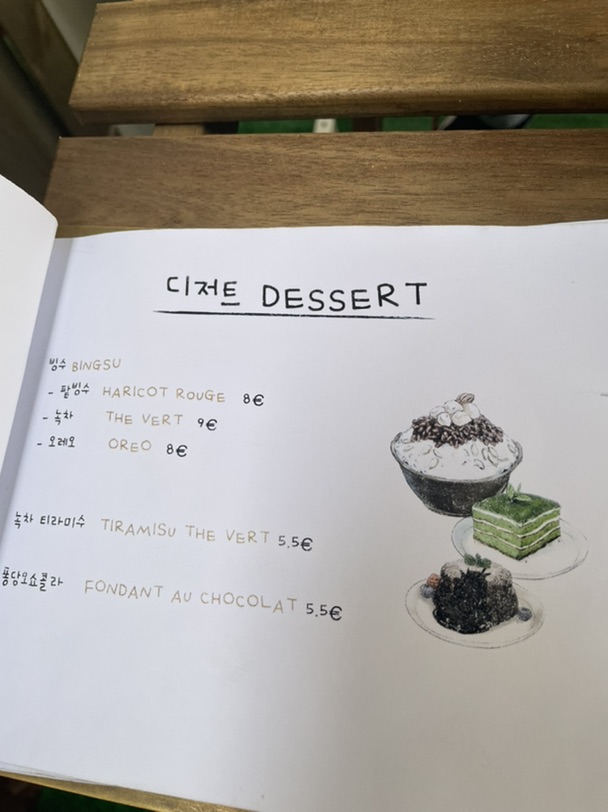 디저트 DESSERT
빙수 BINGSU
- 팥빙수 HARICOT ROUGE 8€
- 녹차 THE VERT 9€
- 오레오 OREO 8€
녹차 티라미수 TIRAMISU THE VERT 5.5€
퐁당오쇼콜라 FONDANT AU CHOCOLAT 5.5€